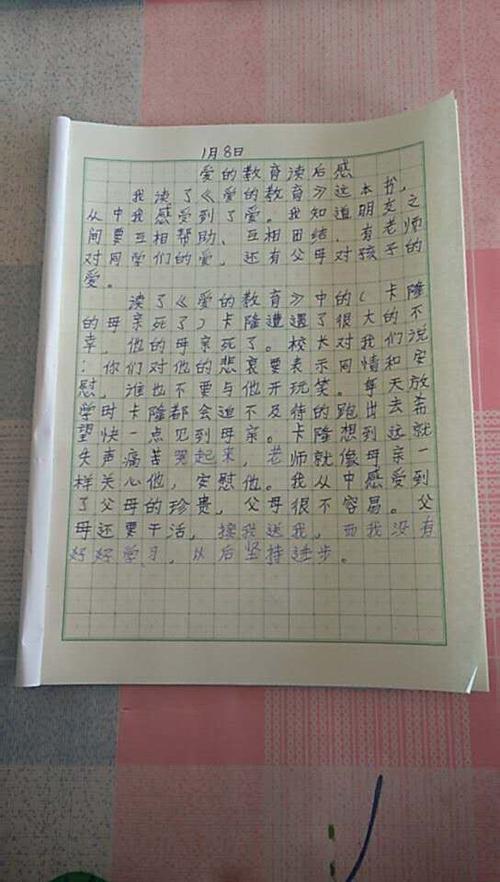 1月8日
爱的教育读后感
我读了《爱的教育》这本书，
从中我感受到了爱。我知道朋友之
间要互相帮助、互相田结，有老师
对同学们的爱，还有父母对孩子的
爱。
读了《爱的教育》中的（卡隆
的母亲死了）卡隆遭遇了很大的不
幸，他的母亲死了。校长对我们说
：你们对他的悲哀要表示同情和安
慰，谁也不要与他开玩笑。每天放
学时卡隆都会迫不及待的跑出去
望快一点见到母亲。卡隆想到这就
失声痛苦哭起来，老师就像母亲一
样关心他，安慰他。我从中感受到
了父母的珍贵，父母很不容易。父
母还要干活，接我送我，而我没有
好好学习，从后坚持进步。